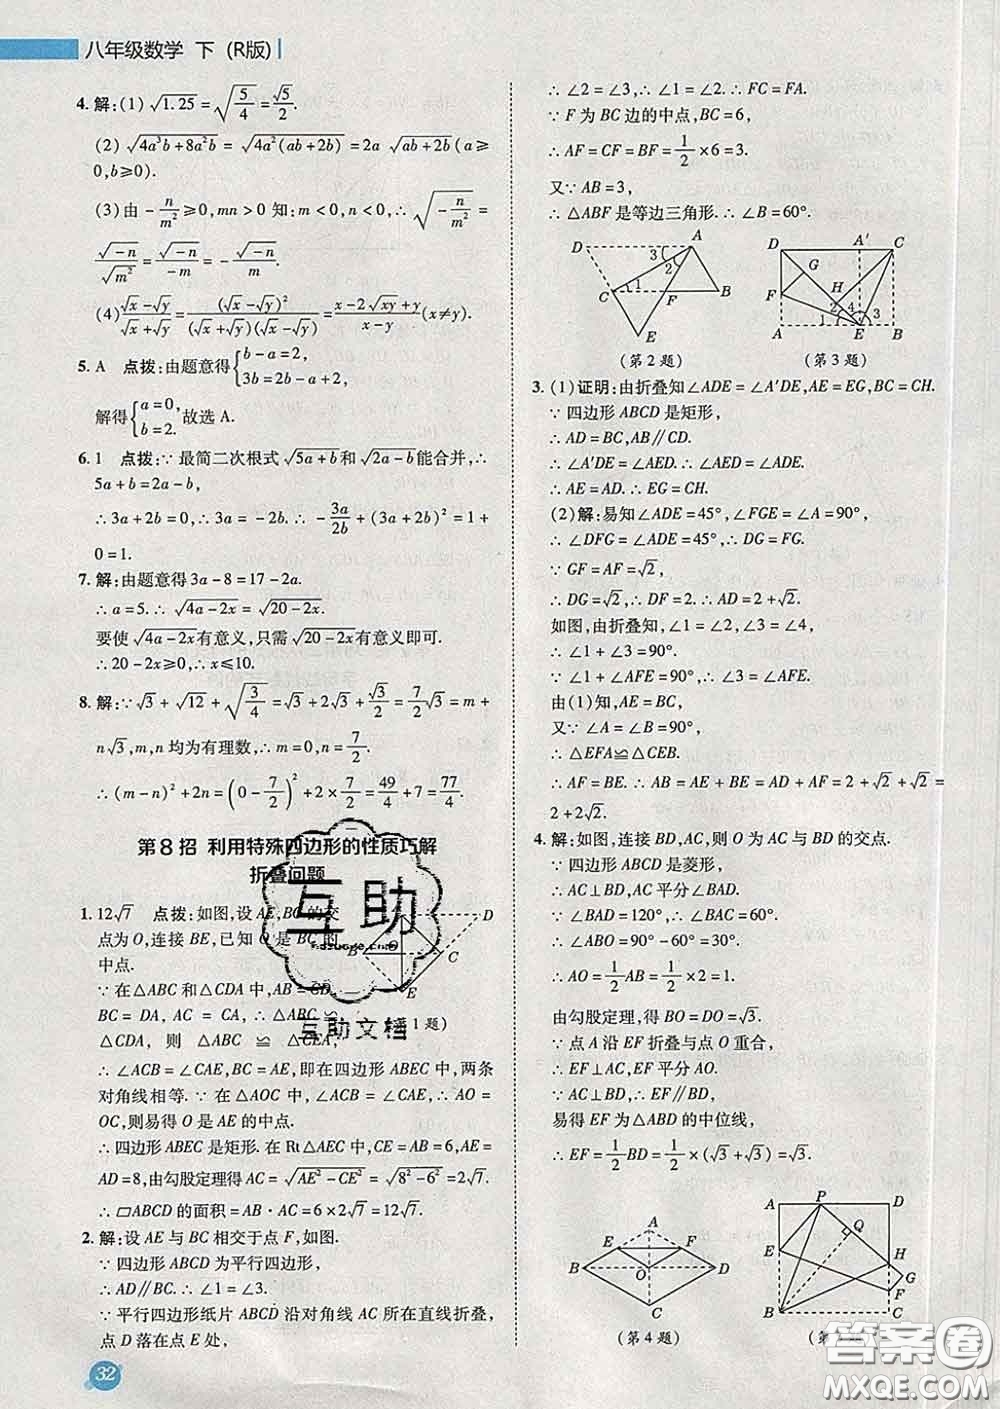 八年级数学 下 (R版)
4. 解:(1) √1.25 = √(5/4) = √5/2.
(2) √(4a³b+8a²b) = √(4a²(ab+2b)) = 2a √(ab+2b)(a≥
0,b≥0).
(3)由 -n/m²≥0,mn>0 知:m<0,n<0,∴ √(-n/m²) =
√(-n)/√(m²) = √(-n)/-m = -√(-n)/m.
(4) (√x-√y)/(√x+√y) = (√x-√y)²/((√x+√y)(√x-√y)) = (x-2√(xy)+y)/(x-y) (x≠y).
5. A 点拨:由题意得{b-a=2, 3b=2b-a+2,
解得{a=0, b=2. 故选 A.
6. 1 点拨:∵ 最简二次根式√(5a+b)和√(2a-b)能合并,∴
5a+b=2a-b,
∴ 3a+2b=0,∴ 3a=-2b. ∴ -3a/2b+(3a+2b)²=1+
0=1.
7. 解:由题意得 3a-8=17-2a.
∴ a=5. ∴ √(4a-2x)=√(20-2x).
要使√(4a-2x)有意义,只需√(20-2x)有意义即可.
∴ 20-2x≥0,∴ x≤10.
8. 解:∵ √3+√12+√(3/4)=√3+2√3+√3/2=7/2√3=m+
n√3,m,n 均为有理数,∴ m=0,n=7/2.
∴ (m-n)²+2n=(0-7/2)²+2×7/2=49/4+7=77/4.
第 8 招 利用特殊四边形的性质巧解
折叠问题
1. 12√7 点拨:如图,设 AE,BC 的交
点为 O,连接 BE,已知 O 是 BC 的
中点.
∵ 在△ABC 和△CDA 中,AB=CD,
BC=DA, AC=CA, ∴ △ABC ≌
△CDA, 则 △ABC ≌ △CEA,
∴ ∠ACB=∠CAE,BC=AE,即在四边形 ABEC 中,两
对角线相等. ∵ 在△AOC 中,∠ACB=∠CAE,∴ AO=
OC,易得 O 是 AE 的中点.
∴ 四边形 ABEC 是矩形. 在 Rt△AEC 中,CE=AB=6,AE=
AD=8,由勾股定理得 AC=√(AE²-CE²)=√(8²-6²)=2√7,
∴ ▱ABCD 的面积=AB·AC=6×2√7=12√7.
2. 解:设 AE 与 BC 相交于点 F,如图.
∵ 四边形 ABCD 为平行四边形,
∴ AD∥BC. ∴ ∠1=∠3.
∵ 平行四边形纸片 ABCD 沿对角线 AC 所在直线折叠,
点 D 落在点 E 处,
32
D
B
C
E
1 题)
互助
互助文档
∴ ∠2=∠3,∴ ∠1=∠2. ∴ FC=FA.
∵ F 为 BC 边的中点,BC=6,
∴ AF=CF=BF=1/2×6=3.
又∵ AB=3,
∴ △ABF 是等边三角形. ∴ ∠B=60°.
D A 3 2 1 C F B E
(第 2 题)
D A' C G H F 1 2 4 3 A E B
(第 3 题)
3. (1)证明:由折叠知∠ADE=∠A'DE,AE=EG,BC=CH.
∵ 四边形 ABCD 是矩形,
∴ AD=BC,AB∥CD.
∴ ∠A'DE=∠AED. ∴ ∠ADE=∠AED.
∴ AE=AD. ∴ EG=CH.
(2)解:易知∠ADE=45°,∠FGE=∠A=90°,
∴ ∠DFG=∠ADE=45°,∴ DG=FG.
∵ GF=AF=√2,
∴ DG=√2,∴ DF=2. ∴ AD=2+√2.
如图,由折叠知,∠1=∠2,∠3=∠4,
∴ ∠1+∠3=90°.
∵ ∠1+∠AFE=90°,∴ ∠3=∠AFE.
由(1)知,AE=BC,
又∵ ∠A=∠B=90°,
∴ △EFA≌△CEB.
∴ AF=BE. ∴ AB=AE+BE=AD+AF=2+√2+√2=
2+2√2.
4. 解:如图,连接 BD,AC,则 O 为 AC 与 BD 的交点.
∵ 四边形 ABCD 是菱形,
∴ AC⊥BD,AC 平分∠BAD.
∵ ∠BAD=120°,∴ ∠BAC=60°,
∴ ∠ABO=90°-60°=30°.
∴ AO=1/2AB=1/2×2=1.
由勾股定理,得 BO=DO=√3,
∵ 点 A 沿 EF 折叠与点 O 重合,
∴ EF⊥AC,EF 平分 AO.
∵ AC⊥BD,∴ EF∥BD.
易得 EF 为△ABD 的中位线,
∴ EF=1/2BD=1/2×(√3+√3)=√3.
A E F B O D C
(第 4 题)
A P D Q E H G F B C
答案圈
MXQE.COM